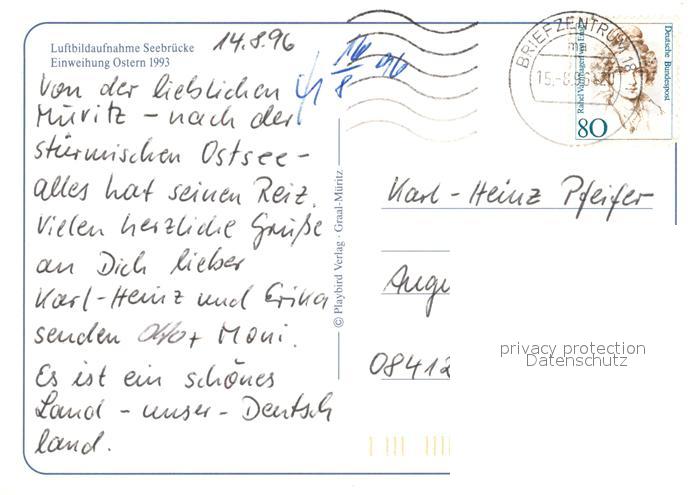 Luftbildaufnahme Seebrücke
Einweihung Ostern 1993
14.8.96
Von der lieblichen
Müritz – nach der
stürmischen Ostsee –
alles hat seinen Reiz.
Vielen herzliche Grüße
an Dich lieber
Karl-Heinz und Erika
senden Otto + Moni.
Es ist ein schönes
Land – unser – Deutsch
land.
16/8 96
© Playbird Verlag · Graal-Müritz
BRIEFZENTRUM 18
mm
Deutsche Bundespost
80
Karl-Heinz Pfeifer
Ange
08412
privacy protection
Datenschutz